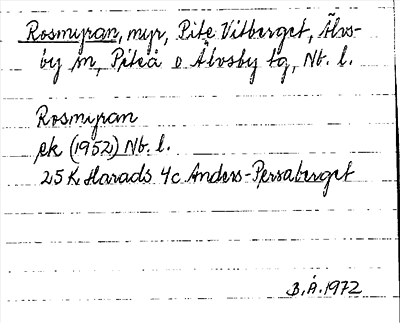 Rosmyran, myr, Pite Vitberget, Älvs-
by sn, Piteå o Älvsby tg, Nb. l.
Rosmyran
ek (1952) Nb. l.
25 K Harads 4c Anders-Persaberget
B.Å. 1972